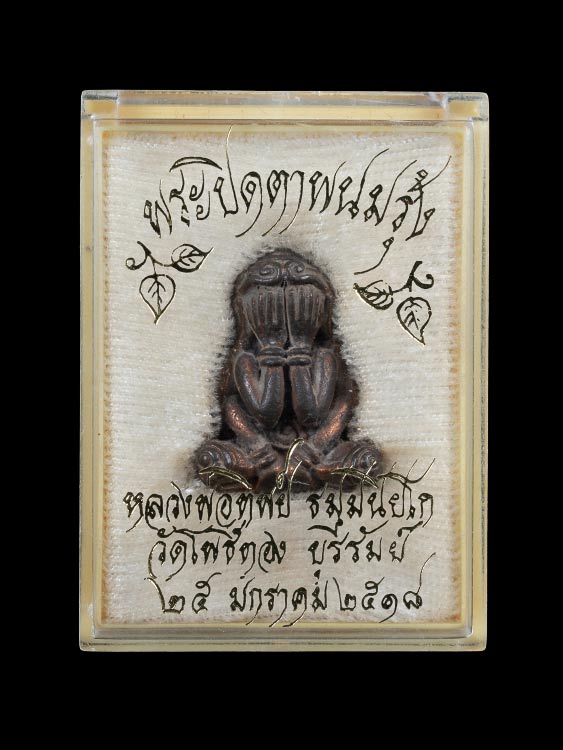 พระปิดตาพนมรุ้ง
หลวงพ่อทิพย์ ธมฺมนิยโก
วัดโพธิ์ทอง บุรีรัมย์
๒๕ มกราคม ๒๕๑๘